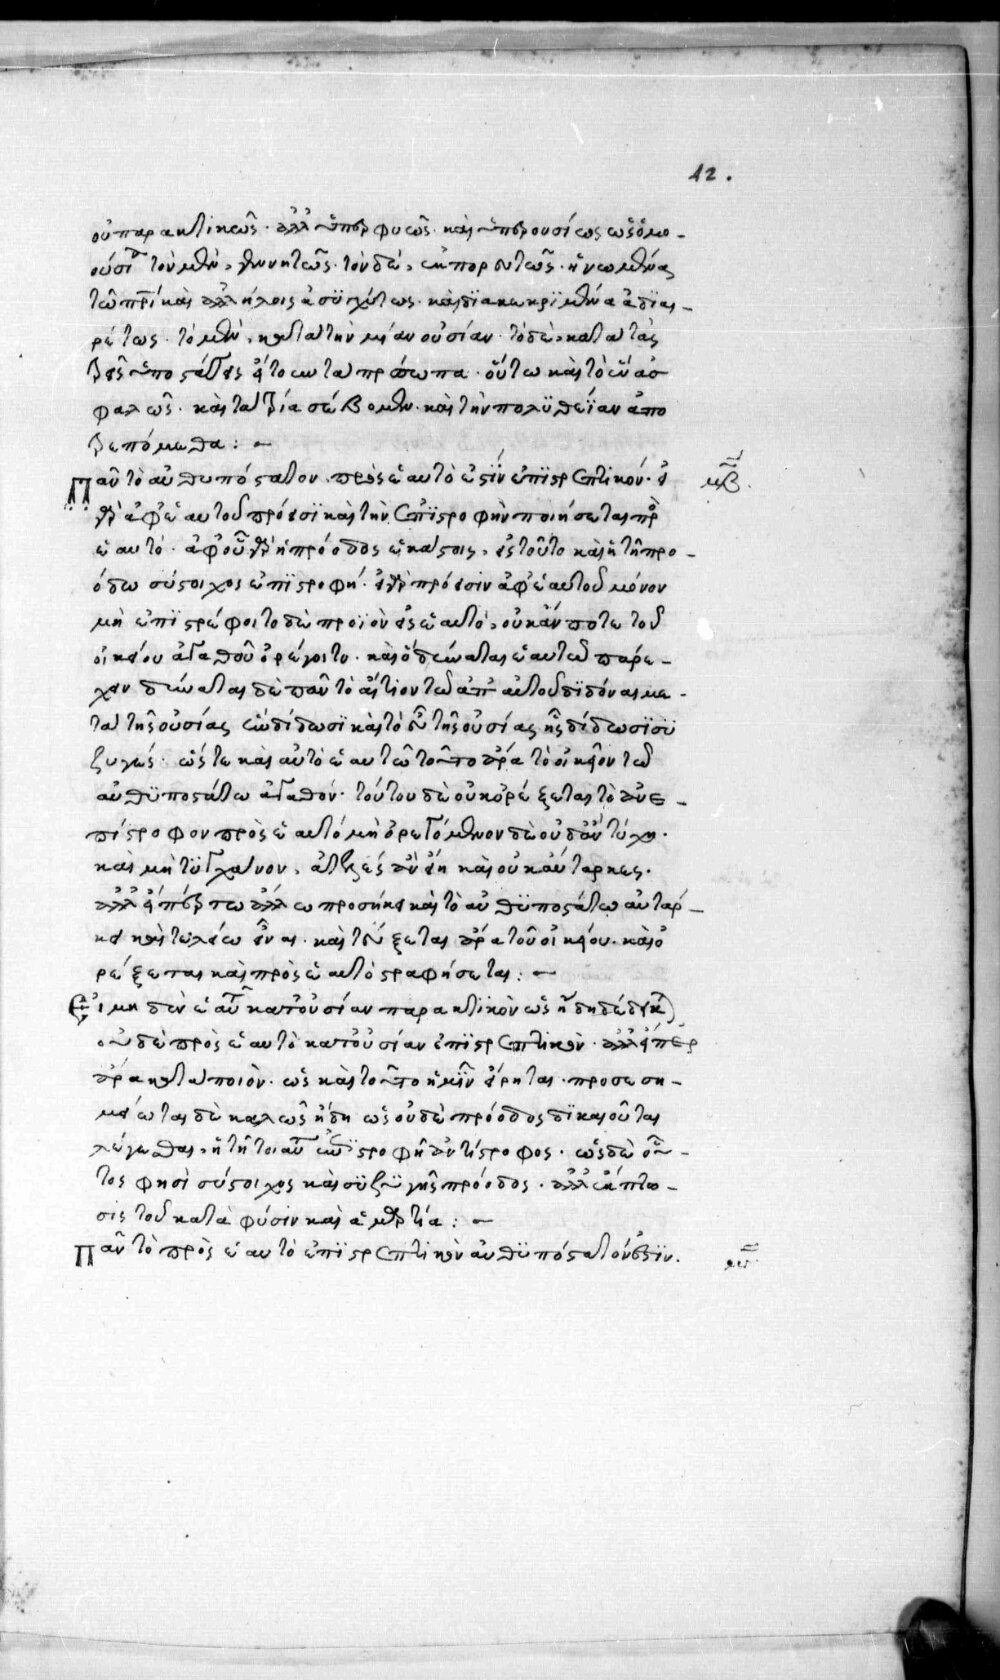 12.
οὐ παρακτικῶς· ἀλλ' ὑπερφυῶς καὶ ὑπερουσίως ὡς ὁμο-
ούσια τὸν μὲν, γεννητῶς· τὸν δὲ, ἐκπορευτῶς· ἡνωμένας
τῷ πρὶ καὶ ἀλλήλοις ἀσϋγχύτως· καὶ διακεκριμένα ἀδιαι-
ρέτως· τὸ μὲν, κατὰ τὴν μίαν οὐσίαν· τὸ δὲ, κατὰ τὰς
ὑποστάσεις εἴτουν τὰ πρόσωπα· οὕτω καὶ τὸ ἓν ἀσ
φαλῶς· καὶ τὰ τρία σέβομεν· καὶ τὴν πολϋθεΐαν ἀπο
τρεπόμεθα: ~
Πᾶν τὸ αὐθυπόστατον, πρὸς ἑαυτό ἐστιν ἐπιστρεπτικόν· εἰ μβ
γὰρ ἀφ' ἑαυτοῦ πρόεισι καὶ τὴν ἐπιστροφὴν ποιήσεται πρὸς
ἑαυτό· ἀφ' οὗ γὰρ ἡ πρόοδος ἑκάστοις, εἰς τοῦτο καὶ ἡ τῇ προ-
όδω σύστοιχος ἐπιστροφή· εἰ γὰρ πρόεισιν ἀφ' ἑαυτοῦ μόνον
μὴ ἐπιστρέφοιτο δὲ προϊὸν εἰς ἑαυτό, οὐκ ἄν ποτε τοῦ
οἰκείου ἀγαθοῦ ὀρέγοιτο· καὶ ὃ δύναται ἑαυτῶ παρέ-
χειν δύναται δὲ πᾶν τὸ αἴτιον τῶ ἀπ' αὐτοῦ διδόναι με-
τὰ τῆς οὐσίας ἧς δίδωσι καὶ τὸ εὖ τῆς οὐσίας ἧς δίδωσι σϋ
ζυγές· ὥστε καὶ αὐτὸ ἑαυτῶ τοῦτο ἄρα τὸ οἰκεῖον τῶ
αὐθϋποστάτω ἀγαθόν· τούτου δὲ οὐκ ὀρέξεται τὸ ἀνε-
πίστροφον πρὸς ἑαυτό μὴ ὀρεγόμενον δὲ οὐδ' ἂν τύχη·
καὶ μὴ τϋγχάνον, ἀτελὲς ἂν εἴη καὶ οὐκ αὔταρκες·
ἀλλ' εἴπέρ τω ἄλλω προσήκει καὶ τὸ αὐθϋποστάτω αὐτάρ-
κει καὶ τελέω εἶναι· καὶ τεύξεται ἄρα τοῦ οἰκείου· καὶ ὀ
ρέξεται καὶ πρὸς ἑαυτὸ στραφήσεται: ~
Εἰ μηδὲν ἑαυτοῦ κατ' οὐσίαν παρακτικὸν ὡς ἤδη δέδεικται
οὐδὲ πρὸς ἑαυτὸ κατ' οὐσίαν ἐπιστρεπτικόν· ἀλλ' εἴπερ
ἄρα κατὰ ποιὸν· ὡς καὶ τοῦτο ἡμῖν εἴρηται· προσεση-
μείωται δὲ καλῶς ἤδη ὡς οὐδὲ πρόοδος δϊκαιοῦται
λέγεσθαι, ἡ τῇ τοιαύτη ἐπιστροφῆ ἀντίστροφος· ὡς δὲ οὗ-
τος φησὶ σύστοιχος καὶ σϋζϋγὴς πρόοδος· ἀλλ' ἔκπτω-
σις τοῦ κατὰ φύσιν καὶ ἁμαρτία: ~
Πᾶν τὸ πρὸς ἑαυτὸ ἐπιστρεπτικὸν αὐθϋπόστατόν ἐστϊν.